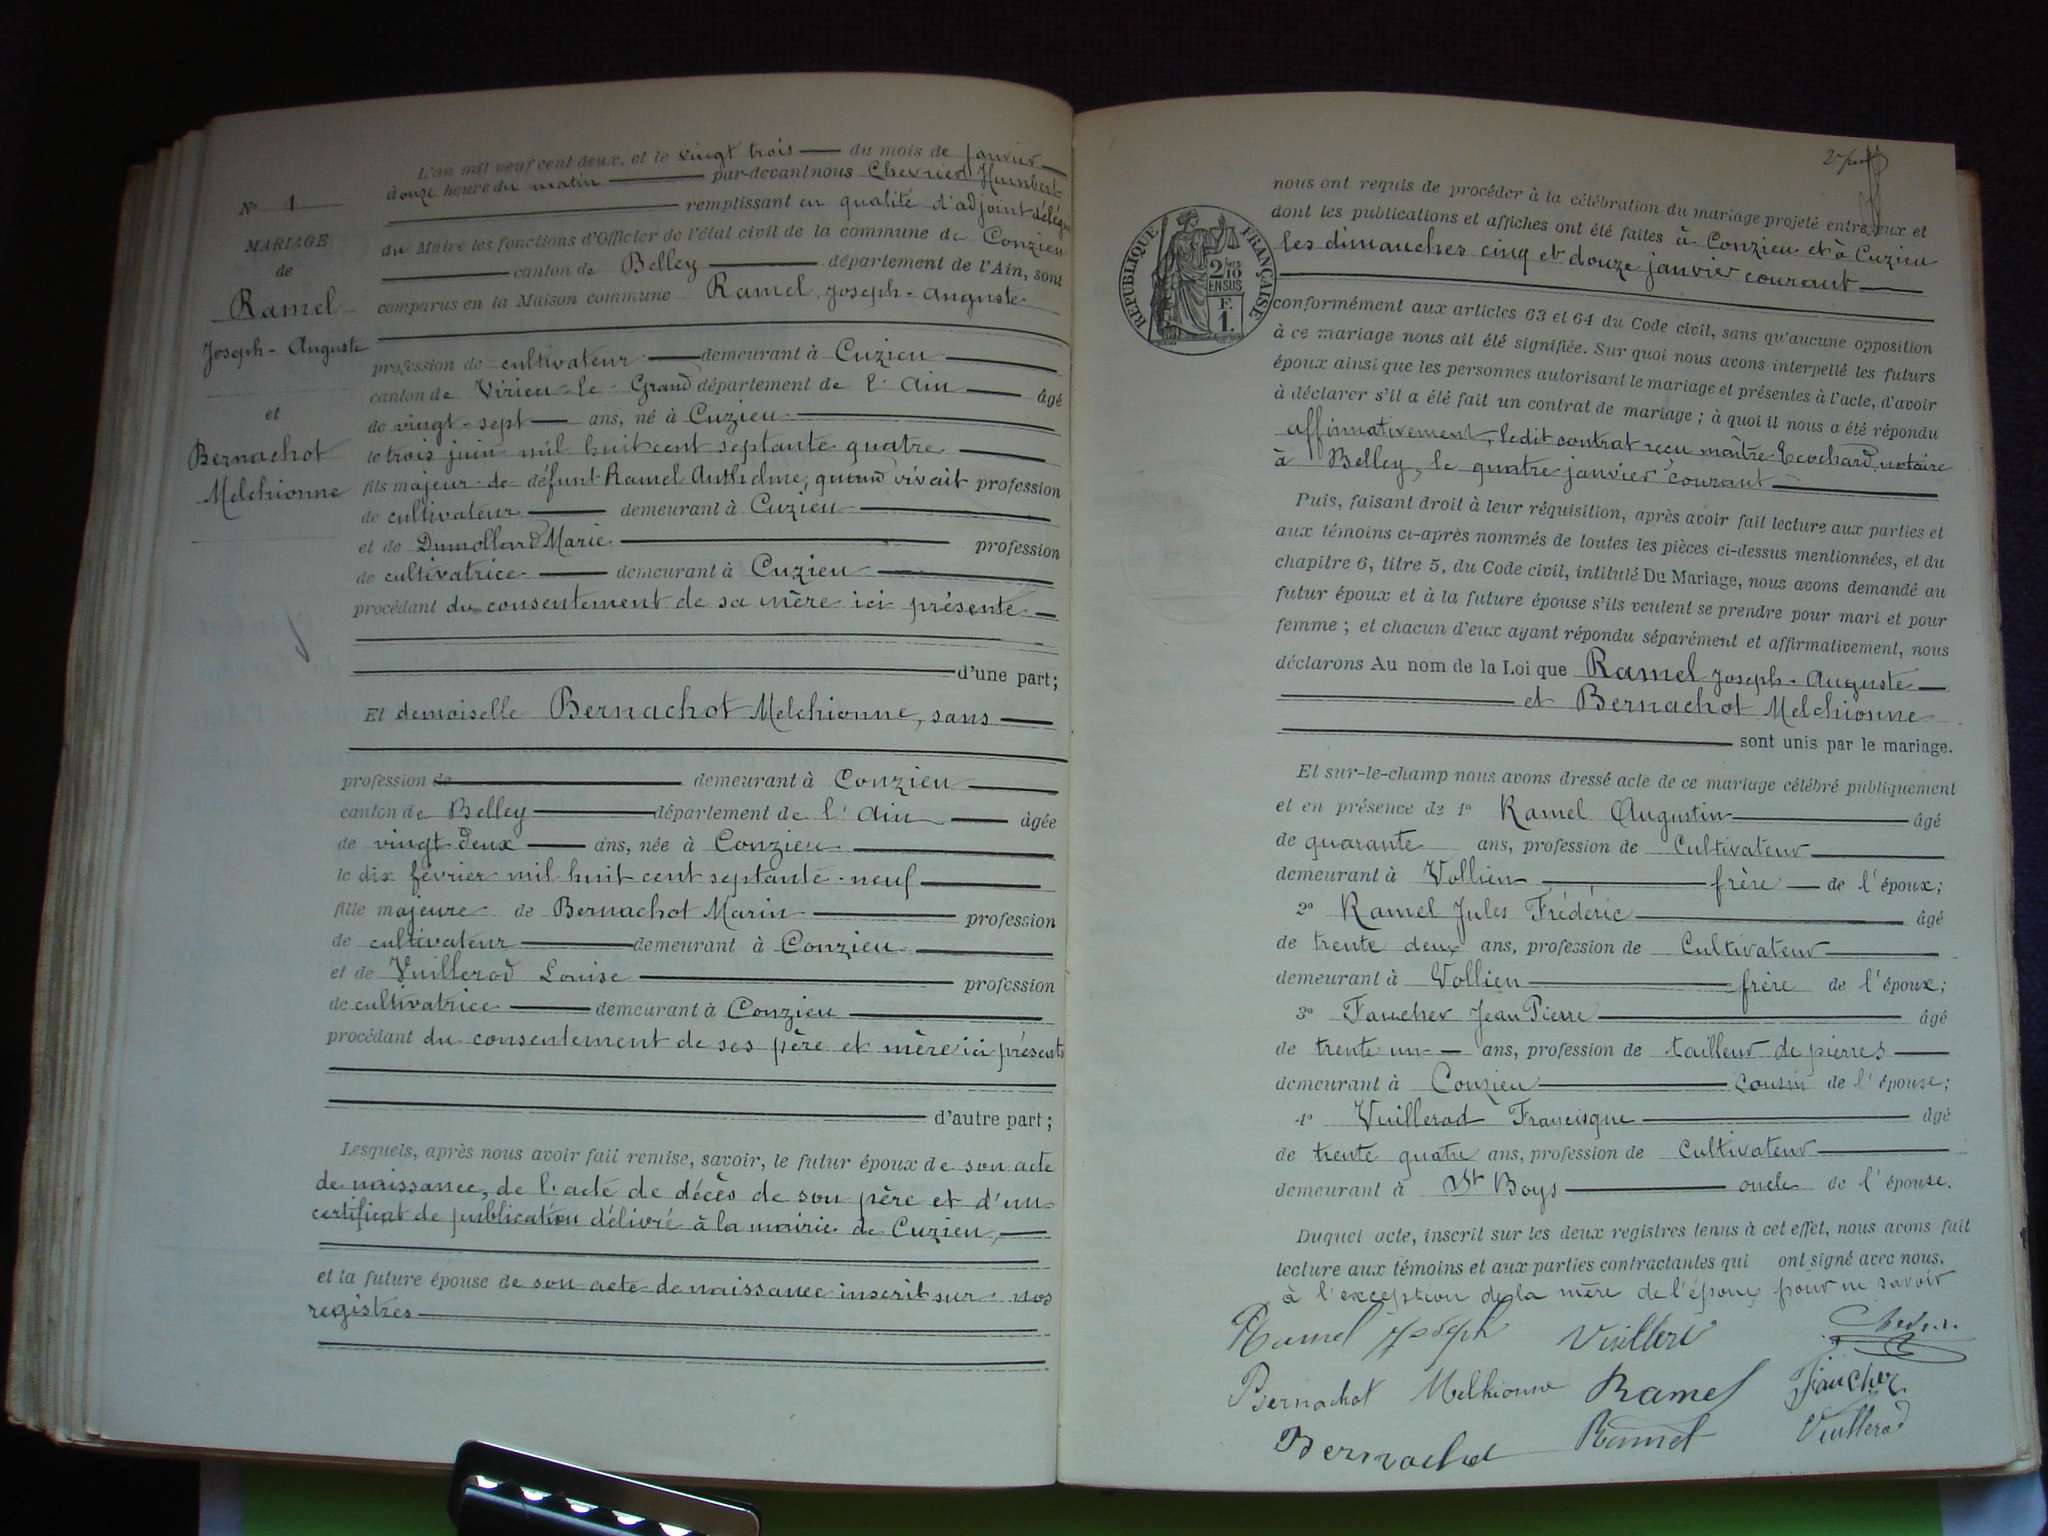 N° 1
MARIAGE
de
Ramel
Joseph-Auguste
et
Bernachot
Melchionne
L'an mil neuf cent deux, et le vingt trois du mois de janvier
à onze heure du matin par-devant nous Chevrier Humbert
remplissant en qualité d'adjoint délégué
du Maire les fonctions d'Officier de l'état civil de la commune de Conzieu
canton de Belley département de l'Ain, sont
comparus en la Maison commune Ramel Joseph-Auguste
profession de cultivateur demeurant à Cuzieu
canton de Virieu-le-Grand département de l'Ain âgé
de vingt-sept ans, né à Cuzieu
le trois juin mil huit cent septante quatre
fils majeur de défunt Ramel Anthelme, quand vivait profession
de cultivateur demeurant à Cuzieu
et de Dumollard Marie profession
de cultivatrice demeurant à Cuzieu
procédant du consentement de sa mère ici présente
d'une part;
Et demoiselle Bernachot Melchionne, sans
profession de demeurant à Conzieu
canton de Belley département de l'Ain âgée
de vingt deux ans, née à Conzieu
le dix février mil huit cent septante-neuf
fille majeure de Bernachot Marin profession
de cultivateur demeurant à Conzieu
et de Vuillerod Louise profession
de cultivatrice demeurant à Conzieu
procédant du consentement de ses père et mère ici présents
d'autre part;
Lesquels, après nous avoir fait remise, savoir, le futur époux de son acte
de naissance, de l'acte de décès de son père et d'un
certificat de publication délivré à la mairie de Cuzieu,
et la future épouse de son acte de naissance inscrit sur nos
registres
RÉPUBLIQUE FRANÇAISE
2/10 EN SUS
F. 1.
nous ont requis de procéder à la célébration du mariage projeté entre eux et
dont les publications et affiches ont été faites à Conzieu et à Cuzieu
les dimanches cinq et douze janvier courant
conformément aux articles 63 et 64 du Code civil, sans qu'aucune opposition
à ce mariage nous ait été signifiée. Sur quoi nous avons interpellé les futurs
époux ainsi que les personnes autorisant le mariage et présentes à l'acte, d'avoir
à déclarer s'il a été fait un contrat de mariage; à quoi il nous a été répondu
affirmativement, ledit contrat reçu maître notaire
à Belley, le quatre janvier courant
Puis, faisant droit à leur réquisition, après avoir fait lecture aux parties et
aux témoins ci-après nommés de toutes les pièces ci-dessus mentionnées, et du
chapitre 6, titre 5, du Code civil, intitulé Du Mariage, nous avons demandé au
futur époux et à la future épouse s'ils veulent se prendre pour mari et pour
femme; et chacun d'eux ayant répondu séparément et affirmativement, nous
déclarons Au nom de la Loi que Ramel Joseph-Auguste
et Bernachot Melchionne
sont unis par le mariage.
Et sur-le-champ nous avons dressé acte de ce mariage célébré publiquement
et en présence de 1° Ramel Augustin âgé
de quarante ans, profession de Cultivateur
demeurant à Vollien frère de l'époux;
2° Ramel Jules Frédéric âgé
de trente deux ans, profession de Cultivateur
demeurant à Vollien frère de l'époux;
3° Faucher Jean Pierre âgé
de trente un ans, profession de tailleur de pierres
demeurant à Conzieu cousin de l'épouse;
4° Vuillerod Francisque âgé
de trente quatre ans, profession de Cultivateur
demeurant à St Boys oncle de l'épouse.
Duquel acte, inscrit sur les deux registres tenus à cet effet, nous avons fait
lecture aux témoins et aux parties contractantes qui ont signé avec nous.
à l'exception de la mère de l'époux pour ne savoir
Ramel Joseph
Bernachot Melkionne Ramel Faucher
Bernachot Ramel Vuillerod